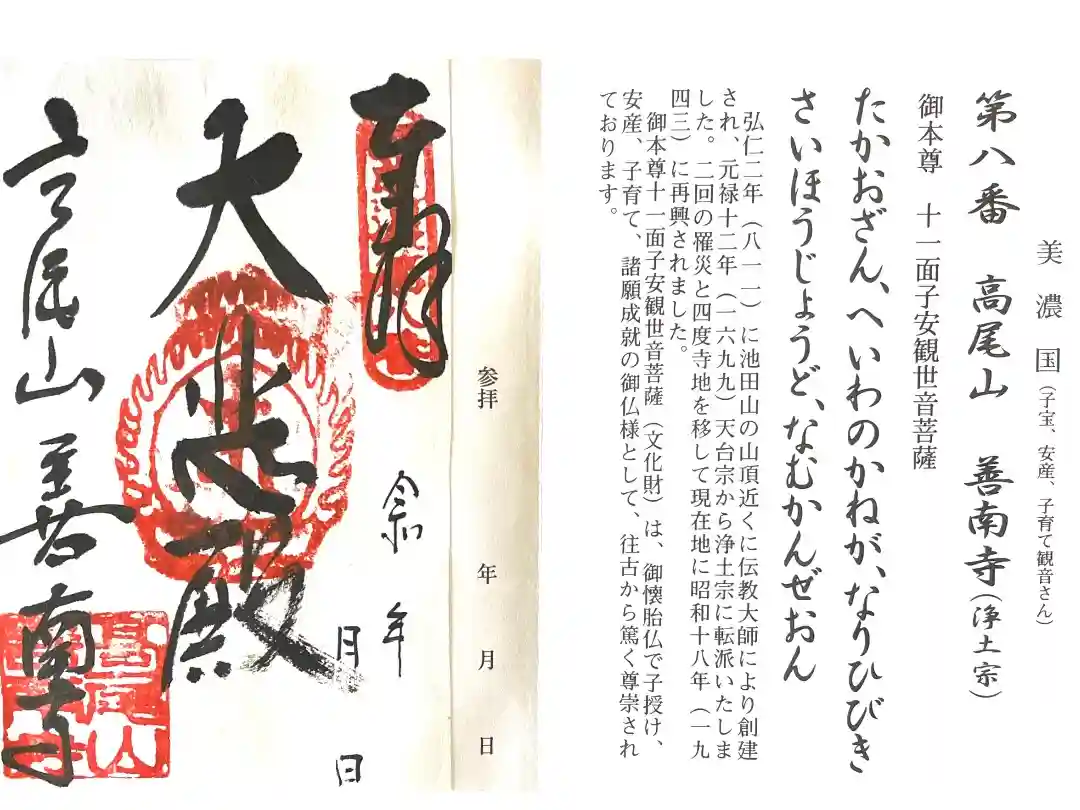 美濃国（子宝、安産、子育て観音さん）
第八番　高尾山　善南寺（浄土宗）
御本尊　十一面子安観世音菩薩
たかおざん、へいわのかねが、なりひびき
さいほうじょうど、なむかんぜおん
弘仁二年（八一一）に池田山の山頂近くに伝教大師により創建
され、元禄十二年（一六九九）天台宗から浄土宗に転派いたしま
した。二回の罹災と四度寺地を移して現在地に昭和十八年（一九
四三）に再興されました。
御本尊十一面子安観世音菩薩（文化財）は、御懐胎仏で子授け、
安産、子育て、諸願成就の御仏様として、往古から篤く尊崇され
ております。
参拝　年　月　日
奉拝
令和　年
月　日
大悲殿
高尾山　善南寺